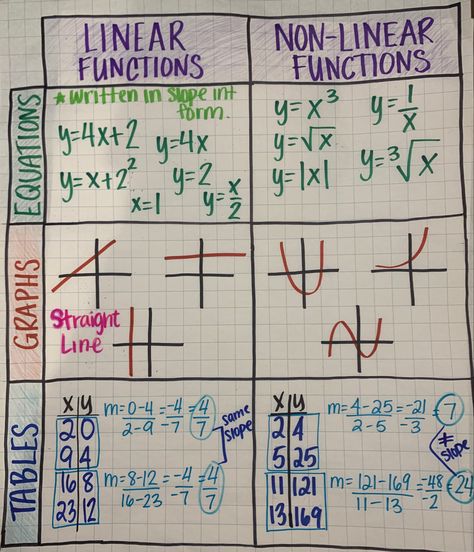 LINEAR
FUNCTIONS
NON-LINEAR
FUNCTIONS
EQUATIONS
* written in slope int
form.
y=4x+2
y=4x
y=x+2²
y=2
x=1
y=x/2
y=x³
y=1/x
y=√x
y=³√x
y=|x|
GRAPHS
Straight
Line
TABLES
x|y
2|0
9|4
16|8
23|12
m=0-4/2-9=-4/-7=4/7
m=8-12/16-23=-4/-7=4/7
same
slope
x|y
2|4
5|25
11|121
13|169
m=4-25/2-5=-21/-3=7
m=121-169/11-13=-48/-2=24
≠
slope